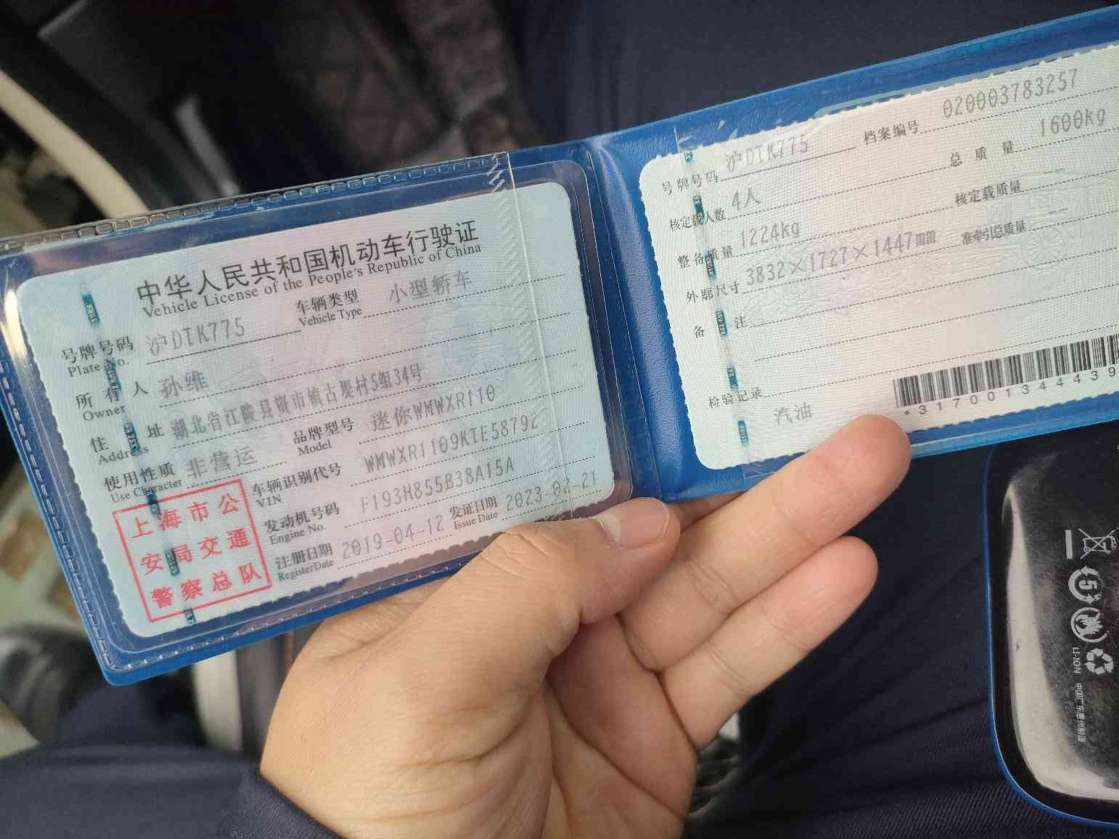 中华人民共和国机动车行驶证
Vehicle License of the People's Republic of China
号牌号码 沪DTK775 车辆类型 小型轿车
Plate No. Vehicle Type
所有人 孙维
Owner
住址 湖北省江陵县资市镇古堤村5组34号
Address
使用性质 非营运 品牌型号 迷你WMWXR110
Use Character Model
车辆识别代号 WMWXR1109KTE58792
VIN
发动机号码 F193H855B38A15A
Engine No.
注册日期 2019-04-12 发证日期 2023-02-21
Register Date Issue Date
上海市公
安局交通
警察总队
号牌号码 沪DTK775 档案编号 020003783257
核定载人数 4人 总质量 1600kg
整备质量 1224kg 核定载质量 --
外廓尺寸 3832×1727×1447mm 准牵引总质量 --
备注
检验记录
汽油
*3170013444439
LI-ION